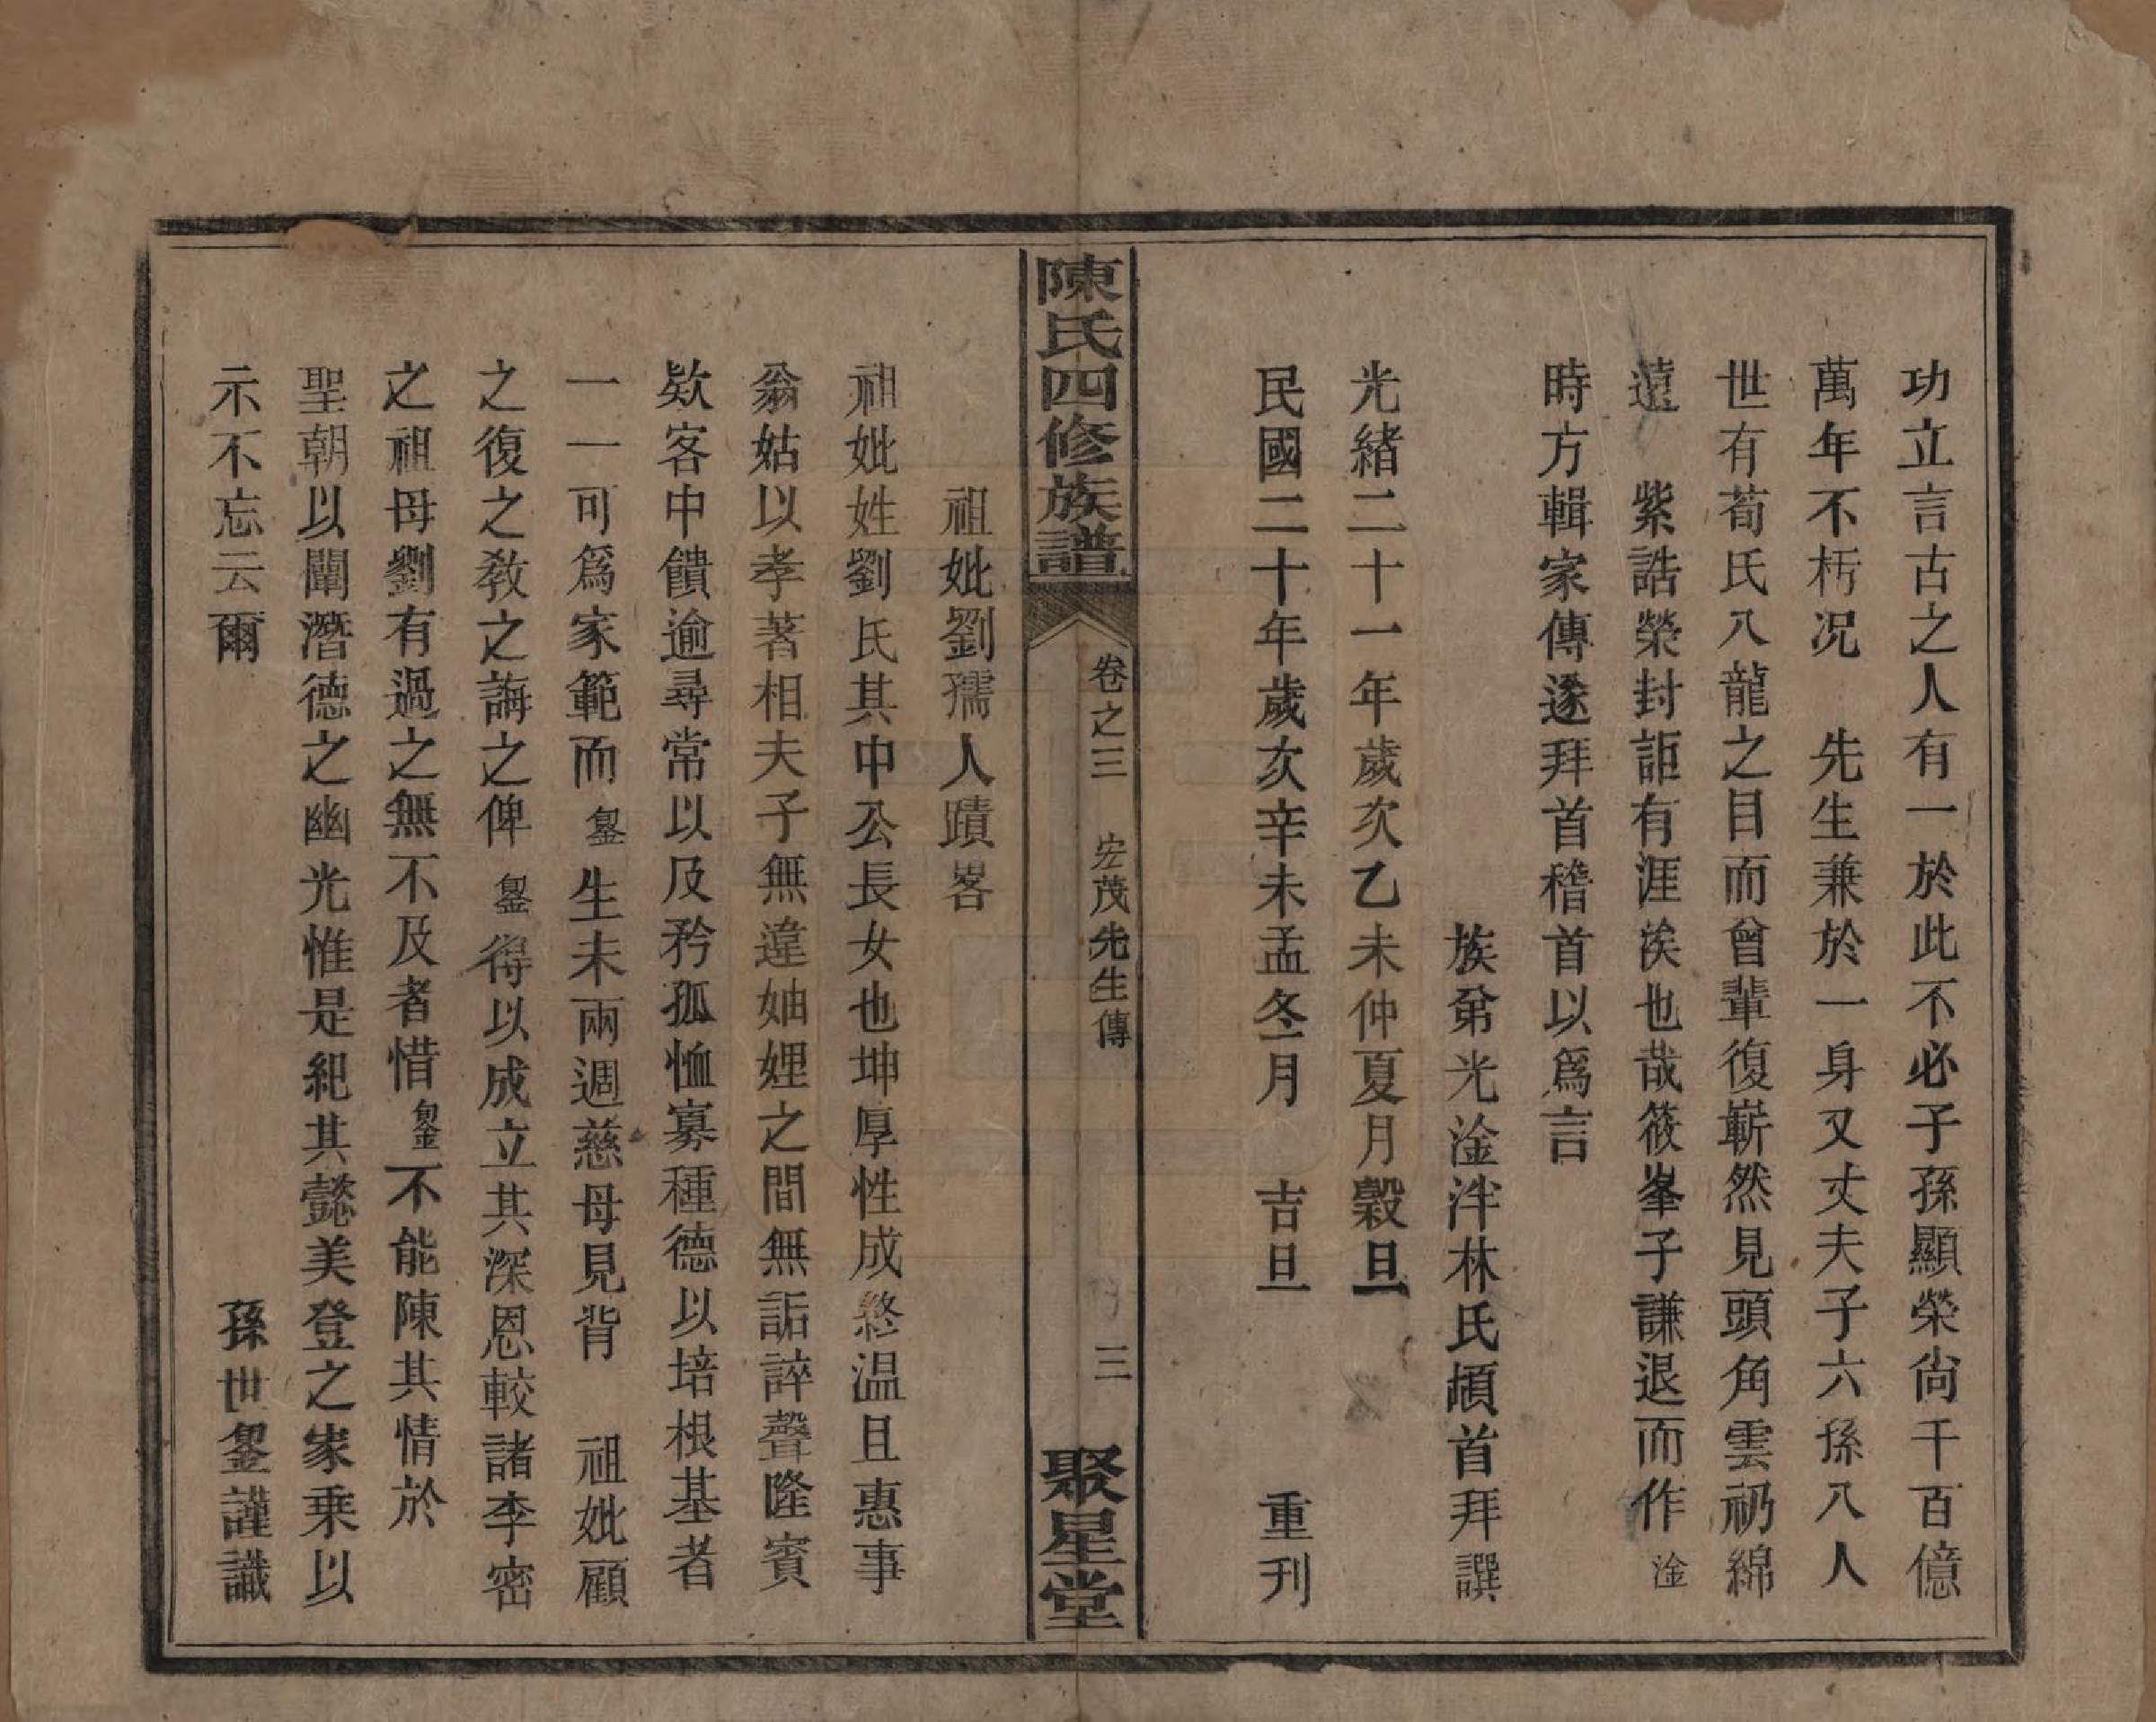 功立言古之人有一於此不必子孫顯榮尙千百億
萬年不朽况　先生兼於一身又丈夫子六孫八人
世有荀氏八龍之目而曾輩復嶄然見頭角雲礽綿
遠　紫誥榮封詎有涯涘也哉筱峯子謙退而作淦
時方輯家傳遂拜首稽首以爲言
族弟光淦泮林氏頓首拜譔
光緒二十一年歲次乙未仲夏月穀旦
民國二十年歲次辛未孟冬月　吉旦　重刊
陳氏四修族譜　卷之三　宏茂先生傳　三　聚星堂
祖妣劉孺人蹟畧
祖妣姓劉氏其中公長女也坤厚性成終温且惠事
翁姑以孝著相夫子無違妯娌之間無詬誶聲隆賓
欵客中饋逾尋常以及矜孤恤寡種德以培根基者
一一可爲家範而鋆生未兩週慈母見背　祖妣顧
之復之敎之誨之俾鋆得以成立其深恩較諸李密
之祖母劉有過之無不及者惜鋆不能陳其情於
聖朝以闡潛德之幽光惟是紀其懿美登之家乗以
示不忘云爾
孫世鋆謹識